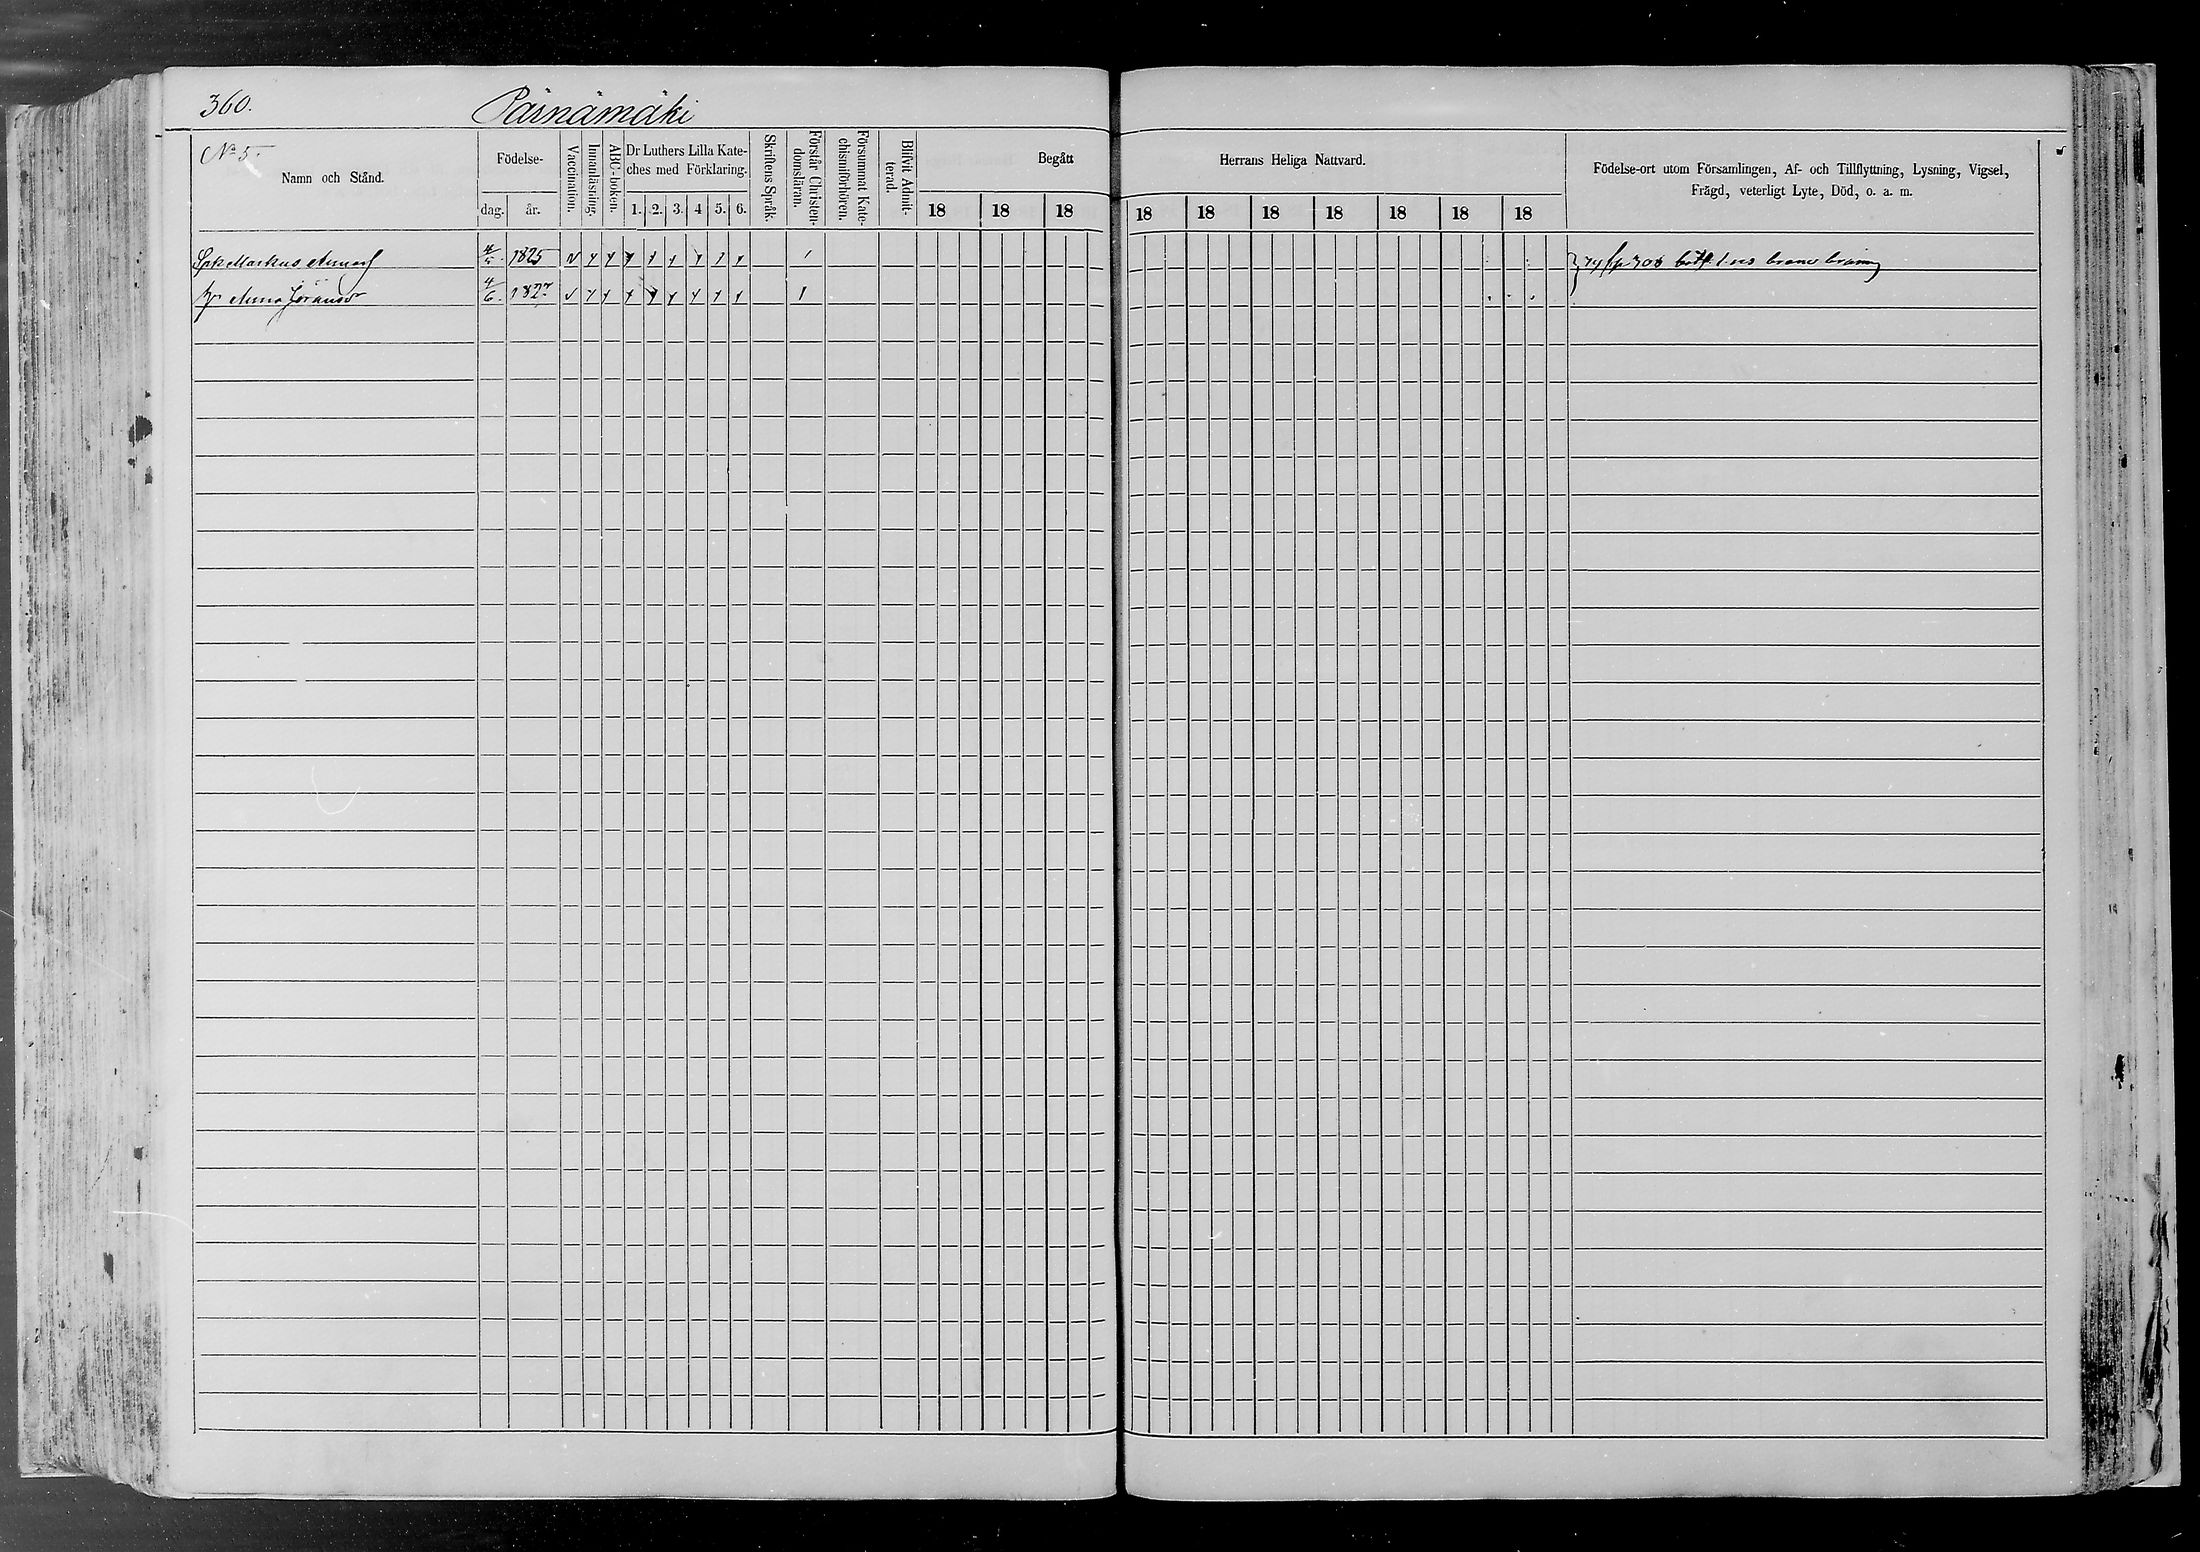 360.
Päinämäki
No 5.
Namn och Stånd.
Födelse-
dag.
år.
Vaccination.
Innanläsning.
ABC-boken.
Dr Luthers Lilla Kate-
ches med Förklaring.
1. 2. 3. 4 5. 6.
Skriftens Språk
Förstår Christen-
domsläran.
Försummat Kate-
chismiförhören.
Blifvit Admit-
terad.
Begått
18 18 18
Herrans Heliga Nattvard.
18 18 18 18 18 18 18
Födelse-ort utom Församlingen, Af- och Tillflyttning, Lysning, Vigsel,
Frägd, veterligt Lyte, Död, o. a. m.
Markus 1825
Anna 4/6. 1827